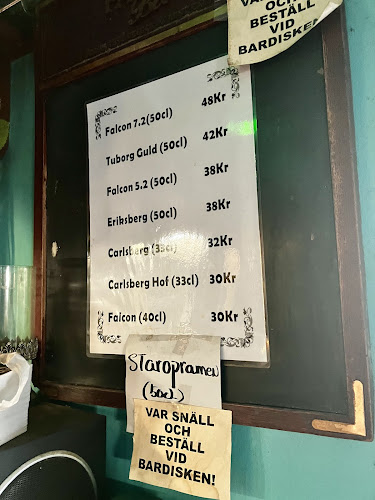 OCH
BESTÄLL
VID
BARDISKEN!
Falcon 7.2(50cl) 48Kr
Tuborg Guld (50cl) 42Kr
Falcon 5.2 (50cl) 38Kr
Eriksberg (50cl) 38Kr
Carlsberg (33cl) 32Kr
Carlsberg Hof (33cl) 30Kr
Falcon (40cl) 30Kr
Staropramen
(50cl)
VAR SNÄLL
OCH
BESTÄLL
VID
BARDISKEN!